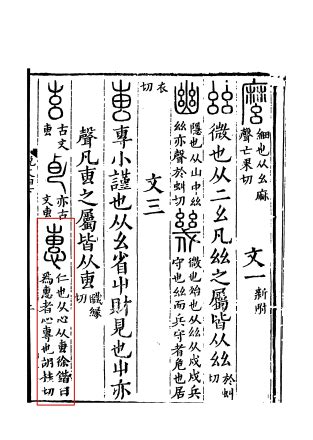 麼 細也从幺麻
聲亡果切
文一 新附
𢆶 微也从二幺凡𢆶之屬皆从𢆶 於虯切
幽 隱也从山中𢆶
𢆶亦聲於虯切
幾 微也殆也从𢆶从戍戍兵
守也𢆶而兵守者危也居
衣切
文三
叀 專小謹也从幺省屮財見也屮亦
聲凡叀之屬皆从叀 職緣切
古文叀
亦古文叀
惠 仁也从心从叀徐鍇曰
爲惠者心專也胡桂切